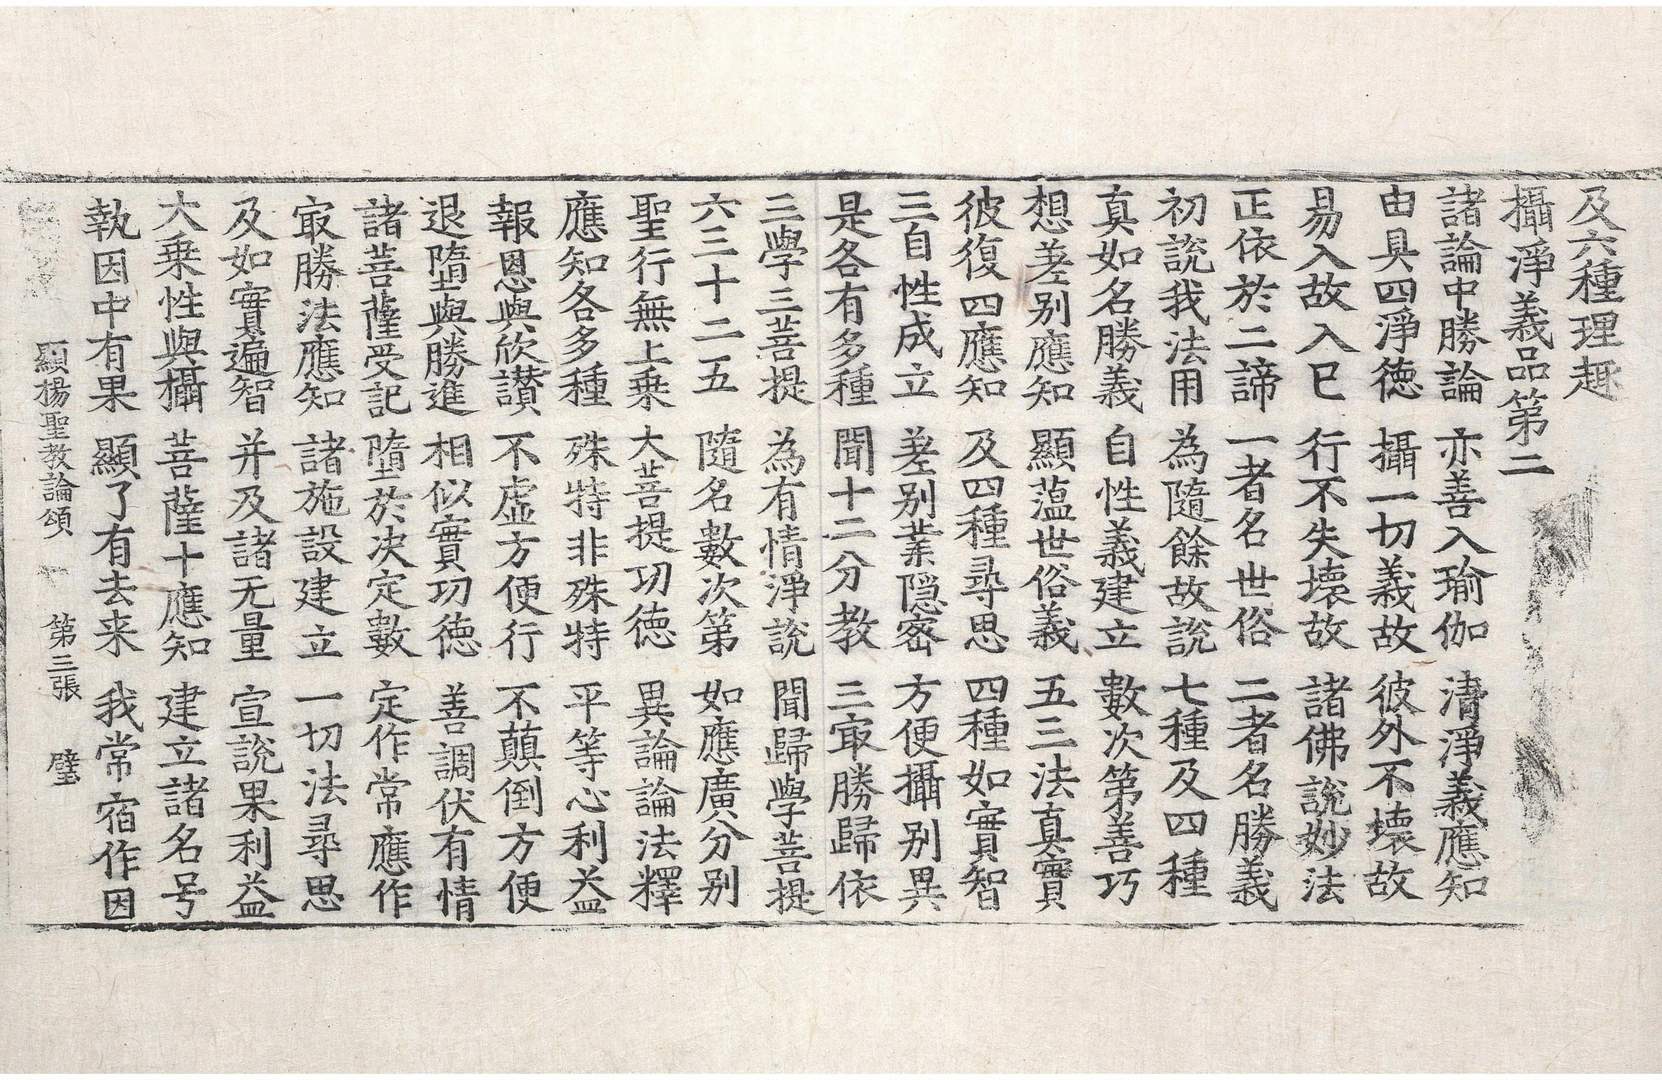 及六種理趣
攝淨義品第二
諸論中勝論 亦善入瑜伽 清淨義應知
由具四淨德 攝一切義故 彼外不壞故
易入故入已 行不失壞故 諸佛說妙法
正依於二諦 一者名世俗 二者名勝義
初說我法用 為隨餘故說 七種及四種
真如名勝義 自性義建立 數次第善巧
想差別應知 顯薀世俗義 五三法真實
彼復四應知 及四種尋思 四種如實智
三自性成立 差別業隱密 方便攝別異
是各有多種 聞十二分教 三㝡勝歸依
三學三菩提 為有情淨說 聞歸學菩提
六三十二五 隨名數次第 如應廣分別
聖行無上乘 大菩提功德 異論論法釋
應知各多種 殊特非殊特 平等心利益
報恩與欣讃 不虛方便行 不顛倒方便
退墮與勝進 相似實功德 善調伏有情
諸菩薩受記 墮於決定數 定作常應作
㝡勝法應知 諸施設建立 一切法尋思
及如實遍智 并及諸无量 宣說果利益
大乗性與攝 菩薩十應知 建立諸名号
執因中有果 顯了有去来 我常宿作因
顯揚聖教論頌 第三張 璧